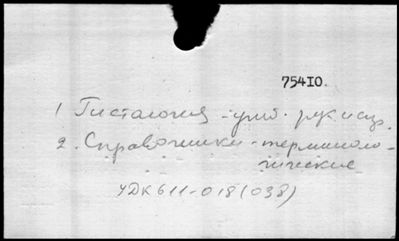 75410.
1 Гистология -
2. Справочники - терминоло-
гические
УДК 611-018(038)